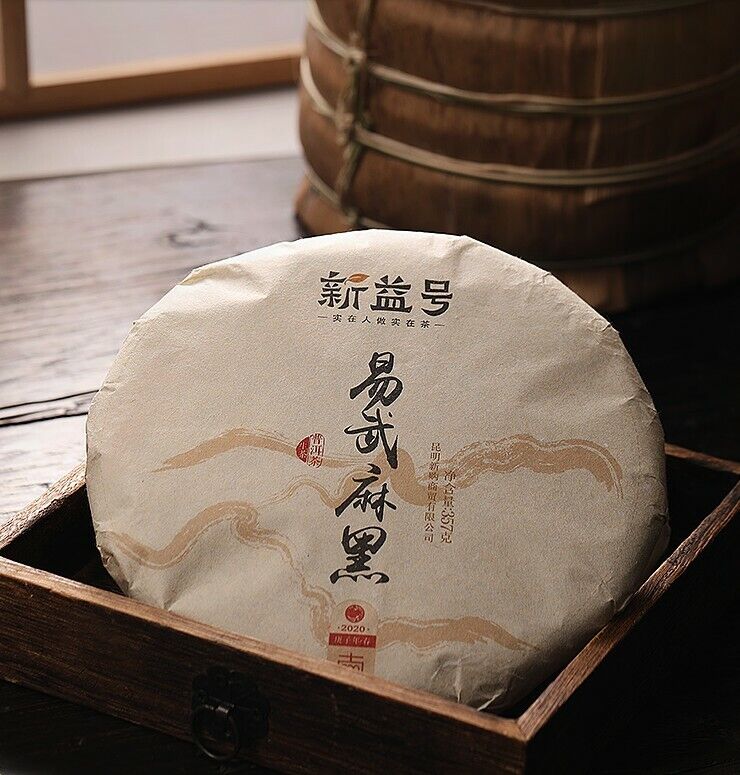 新益号
实在人做实在茶
易武麻黑
普洱茶
生茶
净含量:357克
昆明新购商贸有限公司
·2020·
庚子年·春